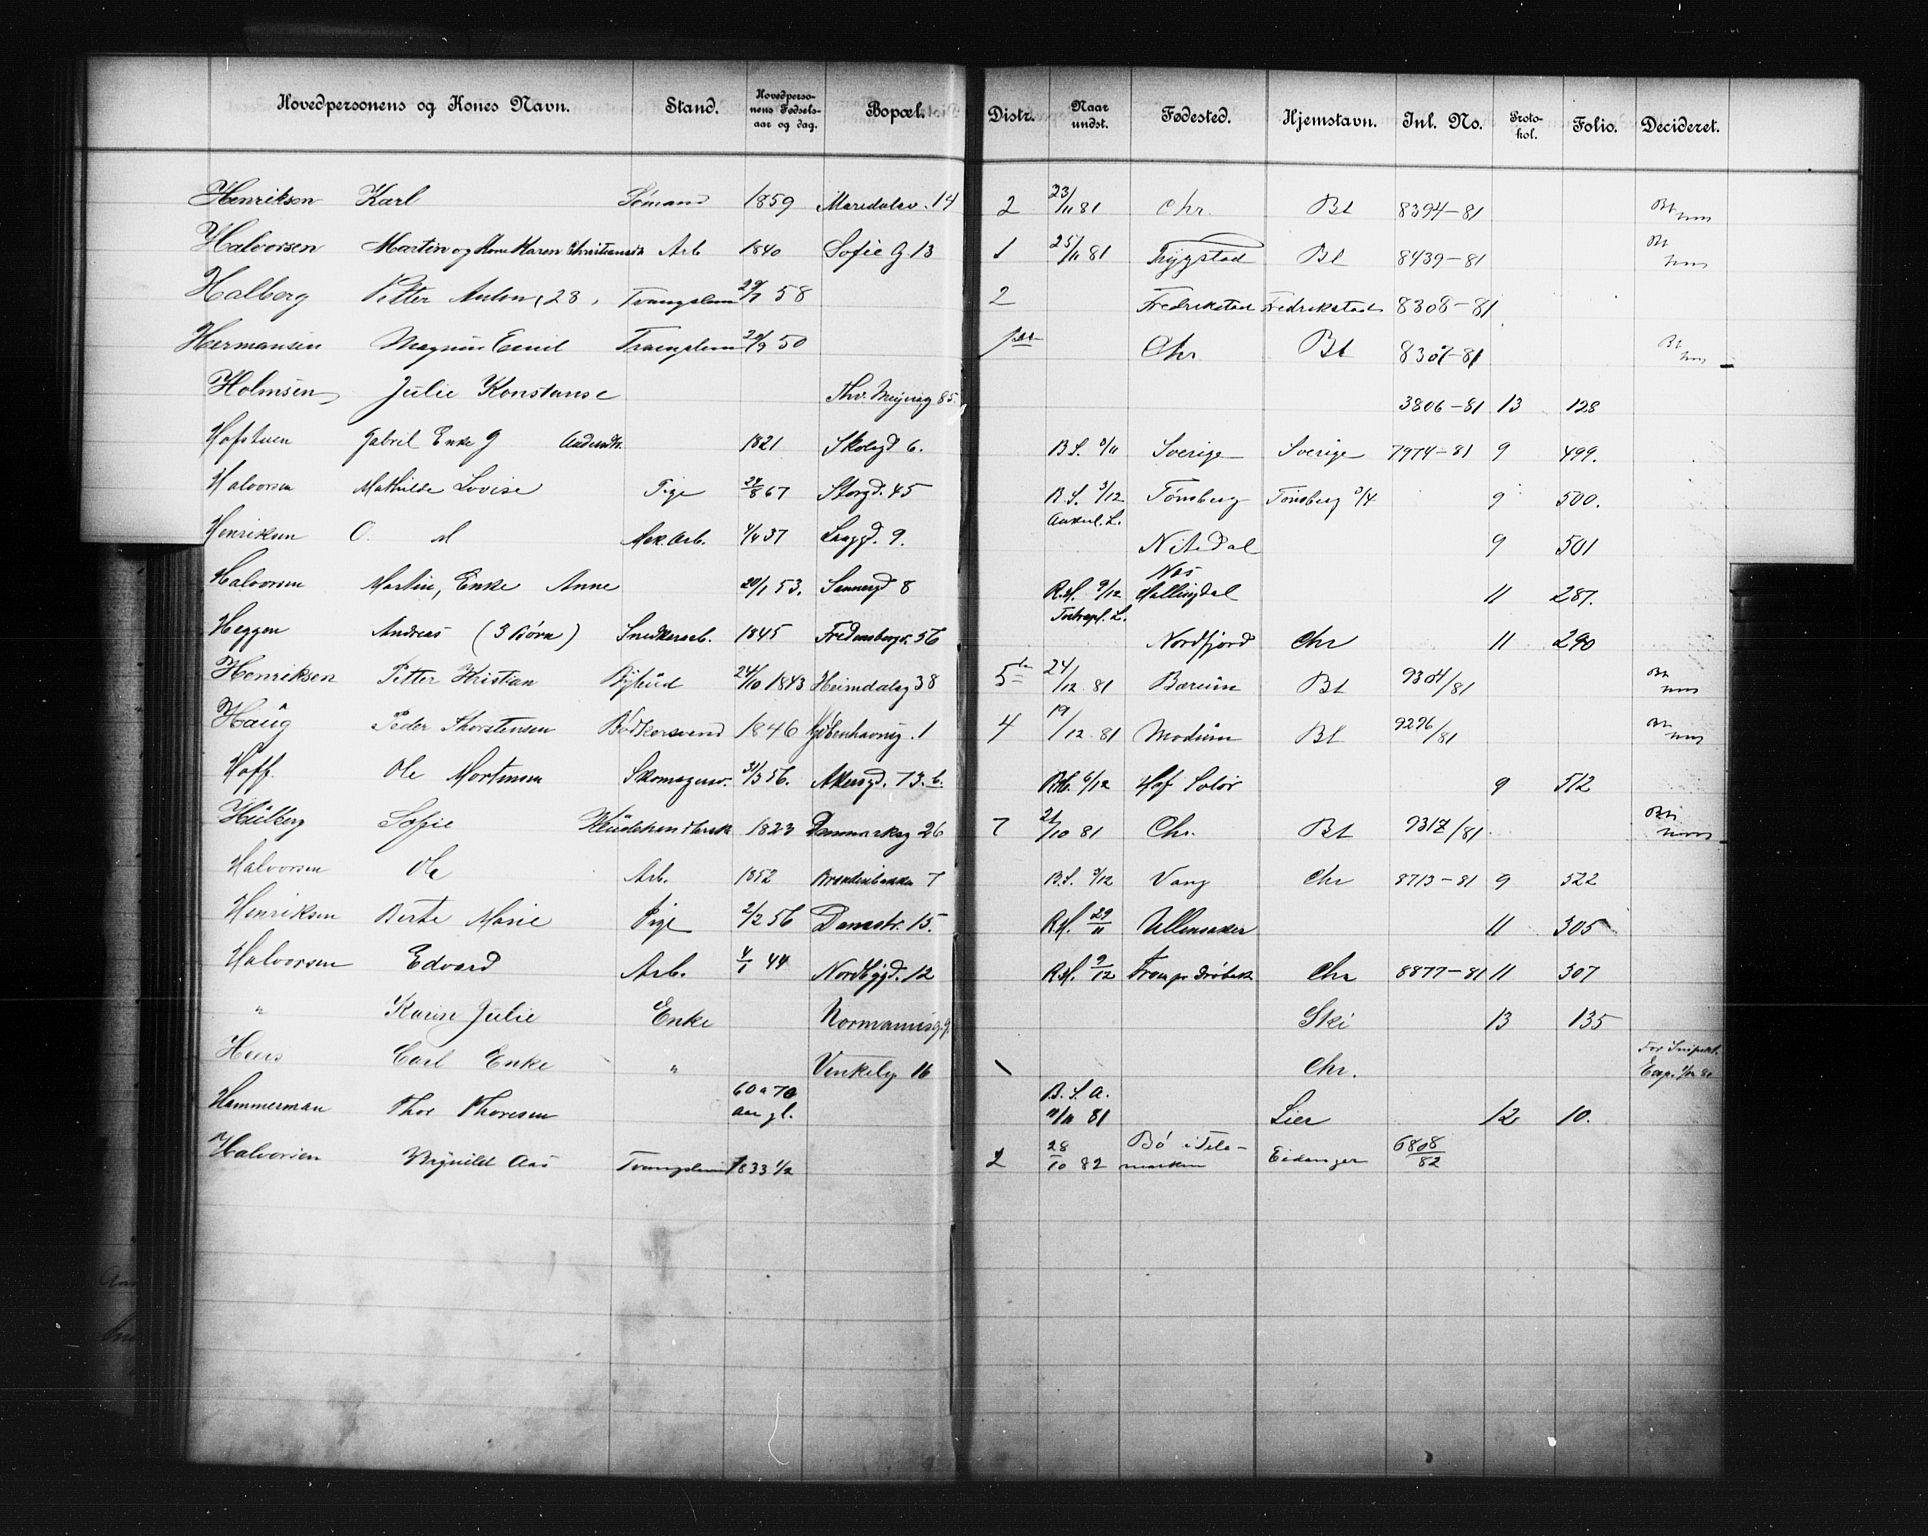 Hovedpersonens og Kones Navn. Stand. Hovedpersonens Fødselsaar og dag. Bopæl. Distr. Naar undst. Fødested. Hjemstavn. Inl. No. Protokol. Folio. Decideret.
Henriksen Karl Sømand 1859 Maridalsv. 14 2 23/11 81 Chr. Bt 8394-81 Bt
Halvorsen Martin og Kone Karen Christiansd Arb 1840 Sofie G 13 1 25/11 81 Trygstad Bt 8439-81 Bt
Halberg Petter Anton, 23, Tvangslem 29/7 58 2 Fredrikstad Fredrikstad 8308-81
Hermansen Magnus Emil Tvangslem 50 Chr Bt 8307-81 Bt
Holmsen Julie Konstanse Thv. Meyersg 85. 3806-81 13 128
Hofstuen Gabriel Enke G 1821 Skolegd 6. B.S. Sverige Sverige 7974-81 9 499.
Halvorsen Mathilde Lovise Pige 24/8 67 Storgd. 45 B.S. 3/12 Tønsberg Tønsberg 9 500.
Henriksen O. M Mek. Arb. 4/4 37 Langgd. 9. Nitedal 9 501
Halvorsen Martin, Enke Anne 20/1 53. Sannergd 8 R.M. 9/12 Næs Hallingdal 11 287.
Heggen Andreas (3 Børn) Snedkerarb. 1845 Fredensborgv. 56 Nordfjord Chr 11 290
Henriksen Petter Kristian Bybud 24/10 1843 Heimdalsg 38 5 24/12 81 Bærum Bt 9304/81 Bt
Haug Peder Thorstensen Bødkersvend 1846 Københavng. 1 4 19/12 81 Modum Bt 9296/81 Bt
Hoff. Ole Mortensen Skomagersv. 31/3 56. Akersgd. 73. b. 6/12 Hof Solør 9 512
Hulberg Sofie Kludehandlersk 1823 Danmarksg 26 7 21/10 81 Chr. Bt 9317/81 Bt
Halvorsen Ole Arb. 1852 Brændenbakken 7 B.S. 3/12 Vang Chr 8713-81 9 522
Henriksen Berte Marie Pige 2/2 56 Damstr. 15. R.M. 29/11 Ullensaker 11 305
Halvorsen Edvard Arb. 4/1 44 Nordbygd. 12 R.M. 9/12 Drøbak Chr 8877-81 11 307
" Karen Julie Enke Normannsg. 9. Ski 13 135
Carl Enke " Vinkelg 16 Chr.
Hammerman Thor Thoresen 60 a 70 aar gl. B. S. A. 11/11 81 Lier 12 10.
Halvorsen Brynild Aas Tvangslem 1833 1/2 2 28/10 82 Bø i Telemarken Eidanger 6808/82